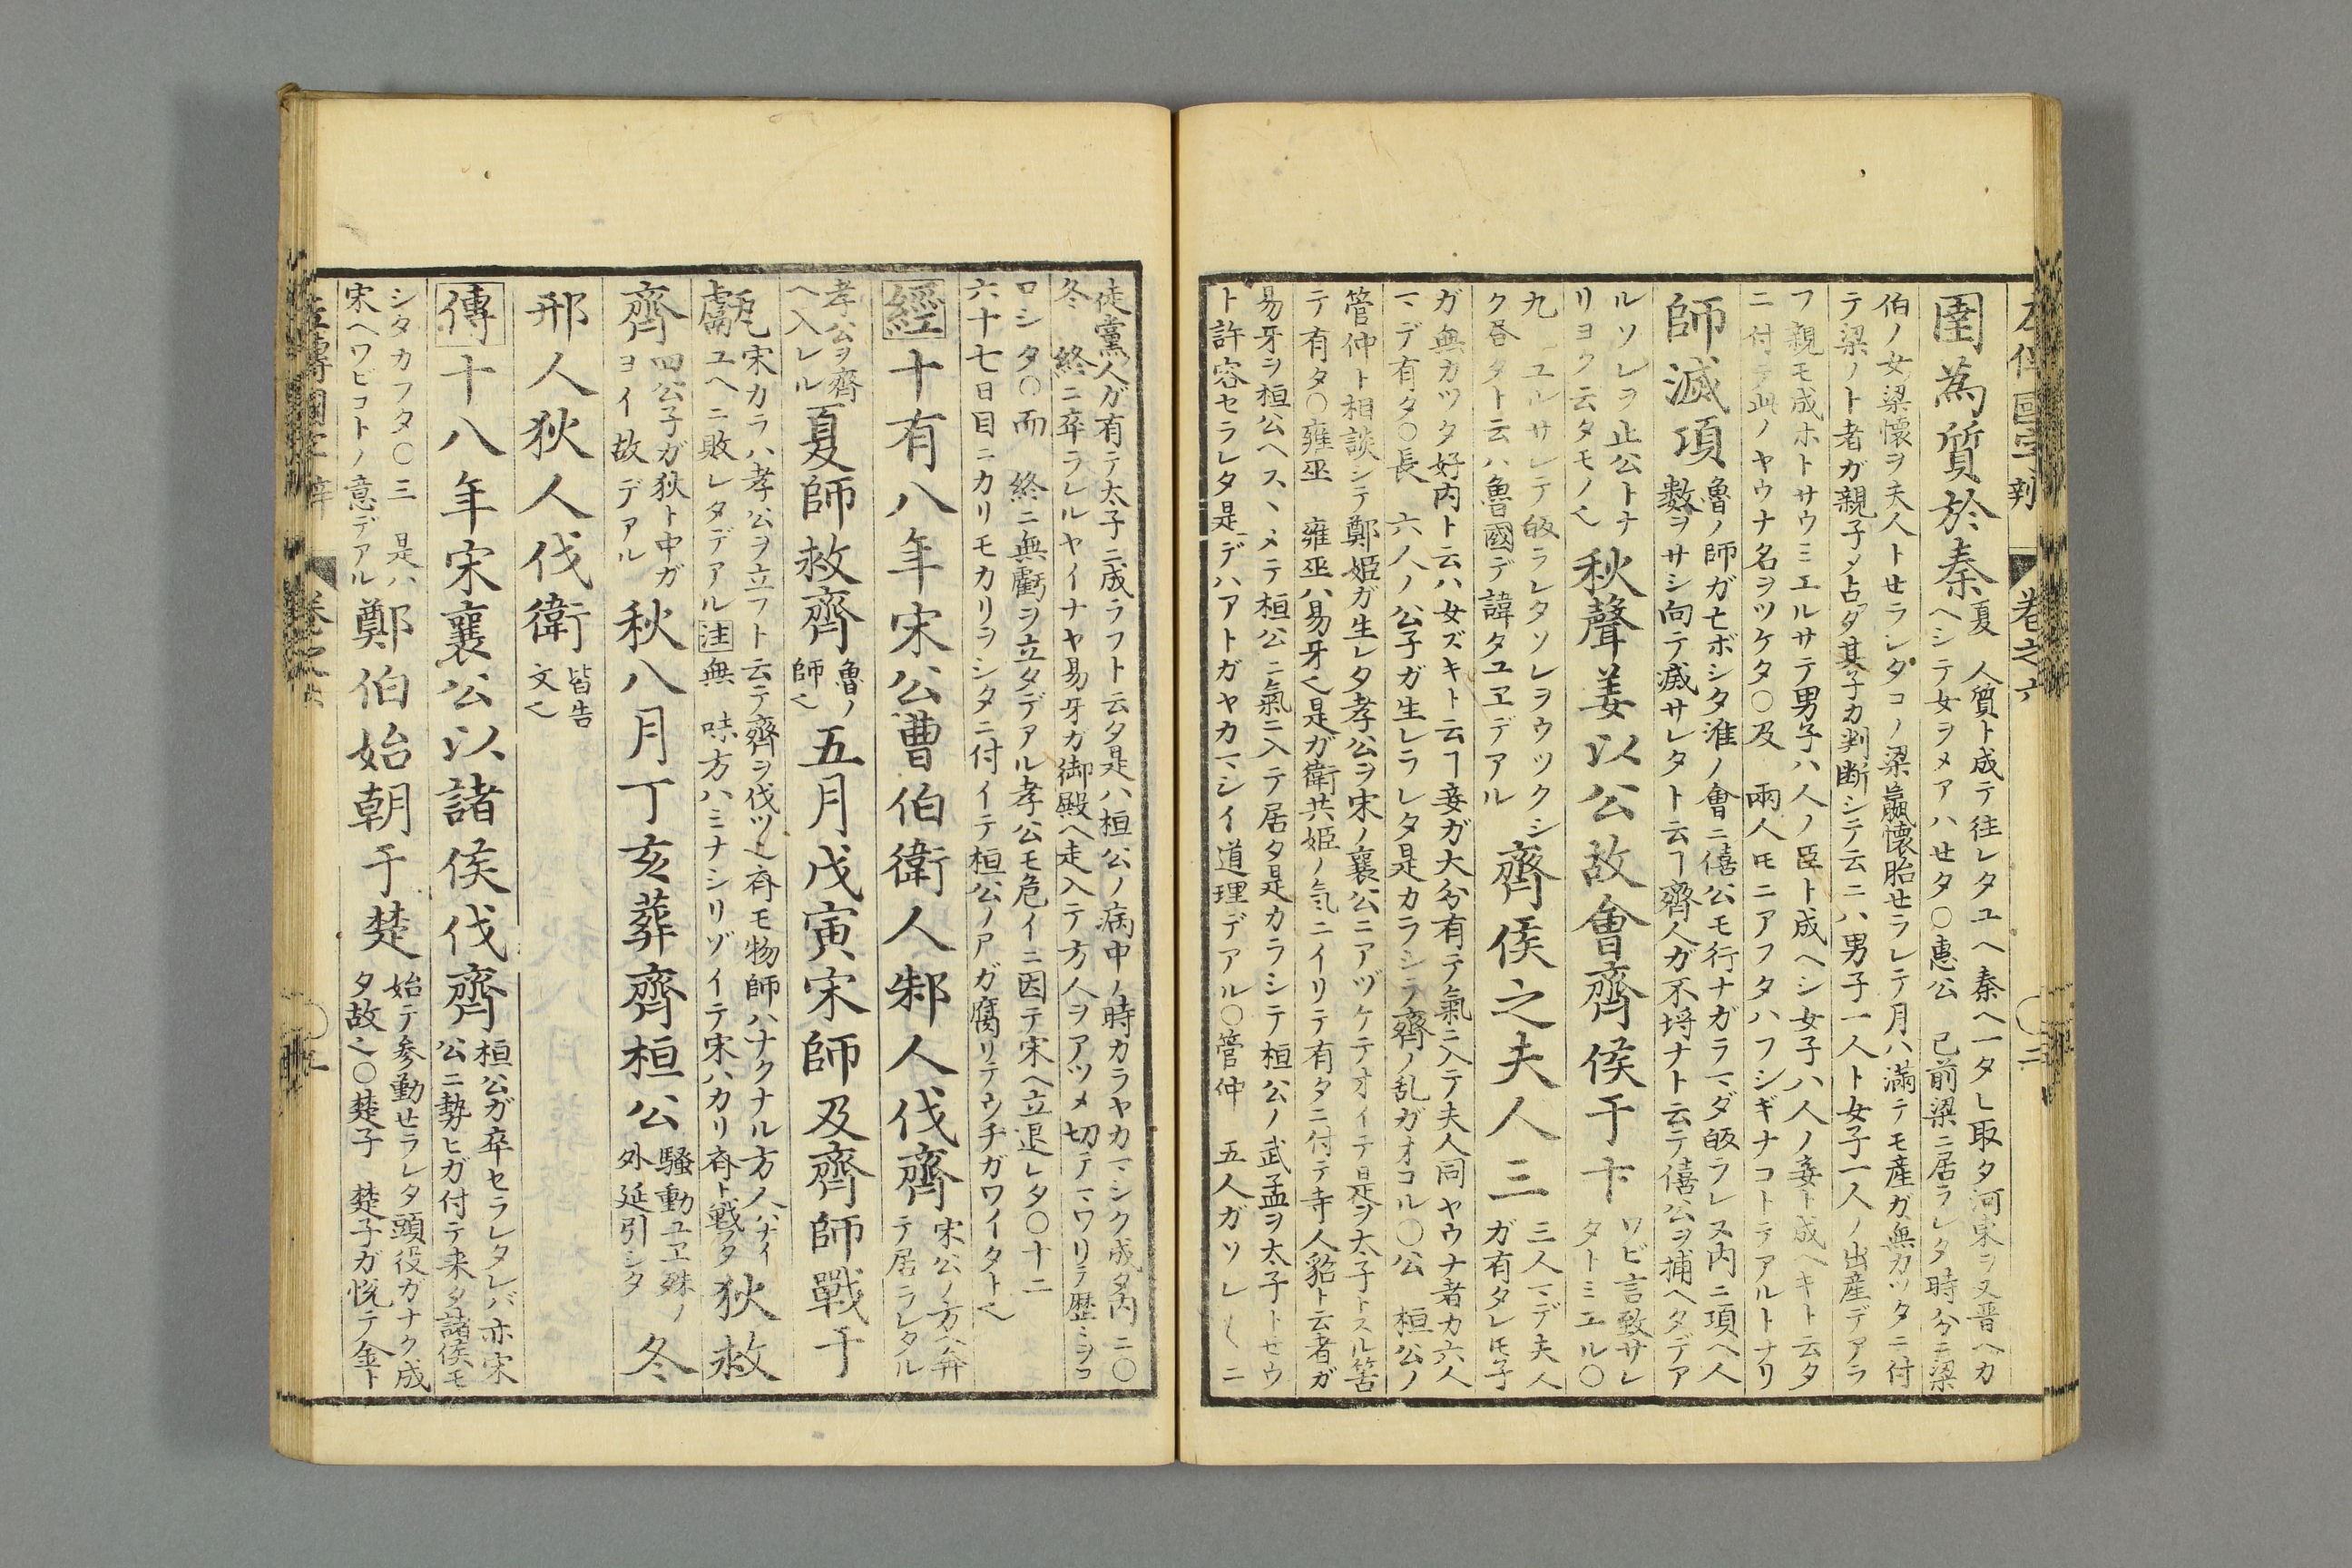 圉為質於秦
夏　人質ト成テ往レタユヘ秦ヘ一タレ取タ河東ヲ又晋ヘカ
ヘシテ女ヲメアハセタ〇惠公　已前梁ニ居ラレタ時分ニ梁
伯ノ女梁懐ヲ夫人トセラレタコノ梁嬴懐胎セラレテ月ハ滿テモ産ガ無カツタニ付
テ梁ノト者ガ親子メ占タ其子カ判断シテ云ニハ男子一人ト女子一人ノ出産デアラ
フ親モ成ホトサウミエルサテ男子ハ人ノ臣ト成ヘシ女子ハ人ノ妾ト成ヘキト云タ
ニ付テ此ノヤウナ名ヲツケタ〇及　兩人ㇳモニアフタハフシギナコトテアルトナリ
師滅項
魯ノ師ガ亡ボシタ淮ノ會ニ僖公モ行ナガラマダ皈ラレヌ内ニ項ヘ人
数ヲサシ向テ滅サレタト云ヿ齊人ガ不埒ナト云テ僖公ヲ捕ヘタデア
ルソレヲ止公トナ
リヨク云タモノ也
秋聲姜以公故會齊侯于卞
ワビ言致サレ
タトミエル〇
九　ユルサレテ皈ラレタソレヲウツクシ
ク書タト云ハ魯國デ諱タユヱデアル
齊侯之夫人三
三人マデ夫人
ガ有タレㇳモ子
ガ無カツタ好内ト云ハ女ズキト云ヿ妾ガ大分有テ氣ニ入テ夫人同ヤウナ者カ六人
マデ有タ〇長　六人ノ公子ガ生レラレタ是カラシテ齊ノ乱ガオコル〇公　桓公ノ
管仲ト相談シテ鄭姫ガ生レタ孝公ヲ宋ノ襄公ニアヅケテオイテ是ヲ太子トスル筈
テ有タ〇雍巫　雍巫ハ易牙也是ガ衛共姫ノ気ニイリテ有タニ付テ寺人貂ト云者ガ
易牙ヲ桓公ヘスヽメテ桓公ニ氣ニ入テ居タ是カラシテ桓公ノ武孟ヲ太子トセウ
ト許容セラレタ是デハアトガヤカマシイ道理デアル〇管仲　五人ガソレ〱ニ
徒黨人ガ有テ太子ニ成ラフト云タ是ハ桓公ノ病中ノ時カラヤカマシク成タ内ニ〇
冬　終ニ卒ラレルヤイナヤ易牙ガ御殿ヘ走入テ方人ヲアツメ切テマワリテ歴ミヲコ
ロシタ〇而　終ニ無虧ヲ立タデアル孝公モ危イニ因テ宋ヘ立退レタ〇十二
六十七日目ニカリモカリヲシタニ付イテ桓公ノアガ腐リテウヂガワイタト也
經十有八年宋公曹伯衛人邾人伐齊
宋公ノ方ヘ奔
テ居ラレタル
孝公ヲ齊
ヘ入レル
夏師救齊
魯ノ
師也
五月戊寅宋師及齊師戰于
甗
宋カラハ孝公ヲ立フト云テ齊ヲ伐ツ也斉モ物師ハナクナル方人ハナイ
ユヘニ敗レタデアル注無　味方ハミナシリゾイテ宋ハカリ斉ト戦フタ
狄救
齊
四公子ガ狄ト中ガ
ヨイ故デアル
秋八月丁亥葬齊桓公
騒動ユヱ殊ノ
外延引シタ
冬
邢人狄人伐衛
皆告
文也
傳十八年宋襄公以諸侯伐齊
桓公ガ卒セラレタレバ亦宋
公ニ勢ヒガ付テ来タ諸侯モ
シタカフタ〇三　是ハ
宋ヘワビコトノ意デアル
鄭伯始朝于楚
始テ参勤セラレタ頭役ガナク成
タ故也〇楚子　楚子ガ悦テ金ト